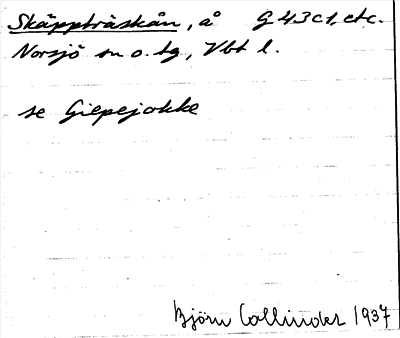 Skäppträskån, å G 43 c1, etc.
Norsjö sn o. tg, Vbt l.
se Giepejokke
Björn Collinder 1937